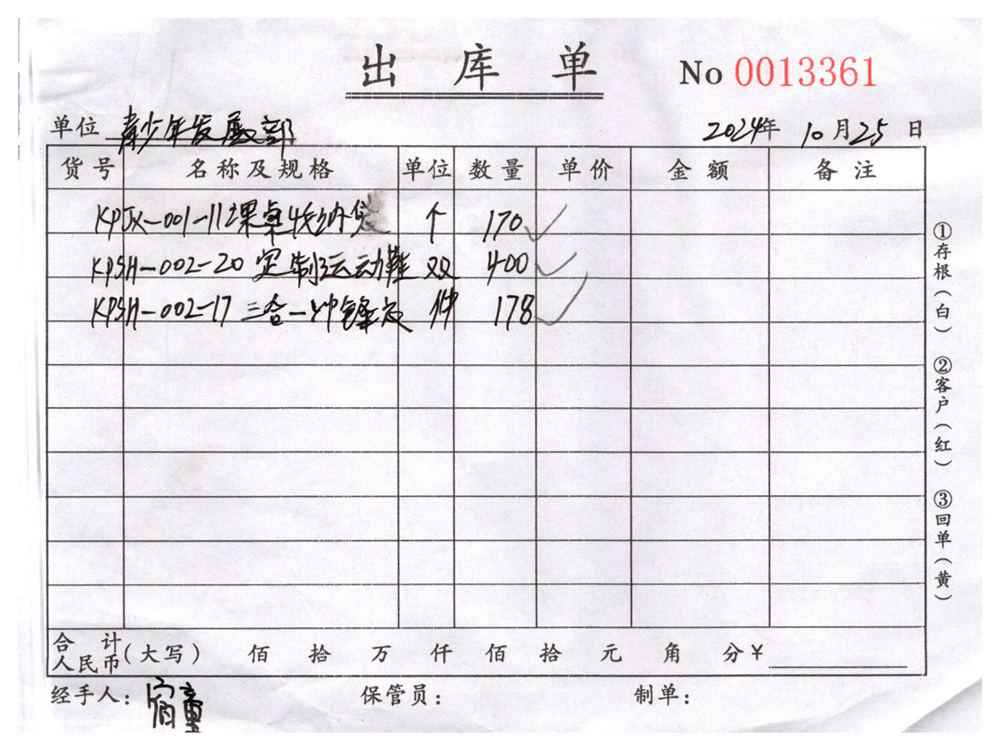 出库单 No 0013361
单位 青少年发展部 2024年 10月25日
货号 名称及规格 单位 数量 单价 金额 备注
KPJX-001-112课桌收纳袋 个 170
KPSH-002-20 定制运动鞋 双 400
KPSH-002-17 三合一冲锋衣 件 178
合计人民币(大写) 佰 拾 万 仟 佰 拾 元 角 分¥
经手人: 宿童 保管员: 制单:
①存根(白) ②客户(红) ③回单(黄)